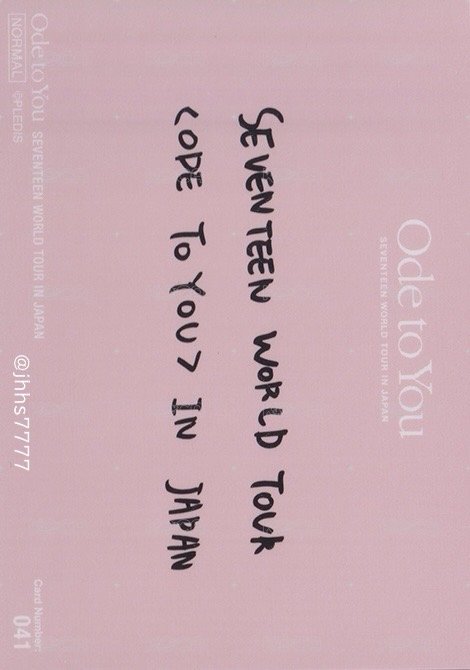 Ode to You
SEVENTEEN WORLD TOUR IN JAPAN
SEVENTEEN WORLD TOUR
<ODE TO YOU> IN JAPAN
Ode to You SEVENTEEN WORLD TOUR IN JAPAN
NORMAL ©PLEDIS
Card Number:
041
@jhhs7777